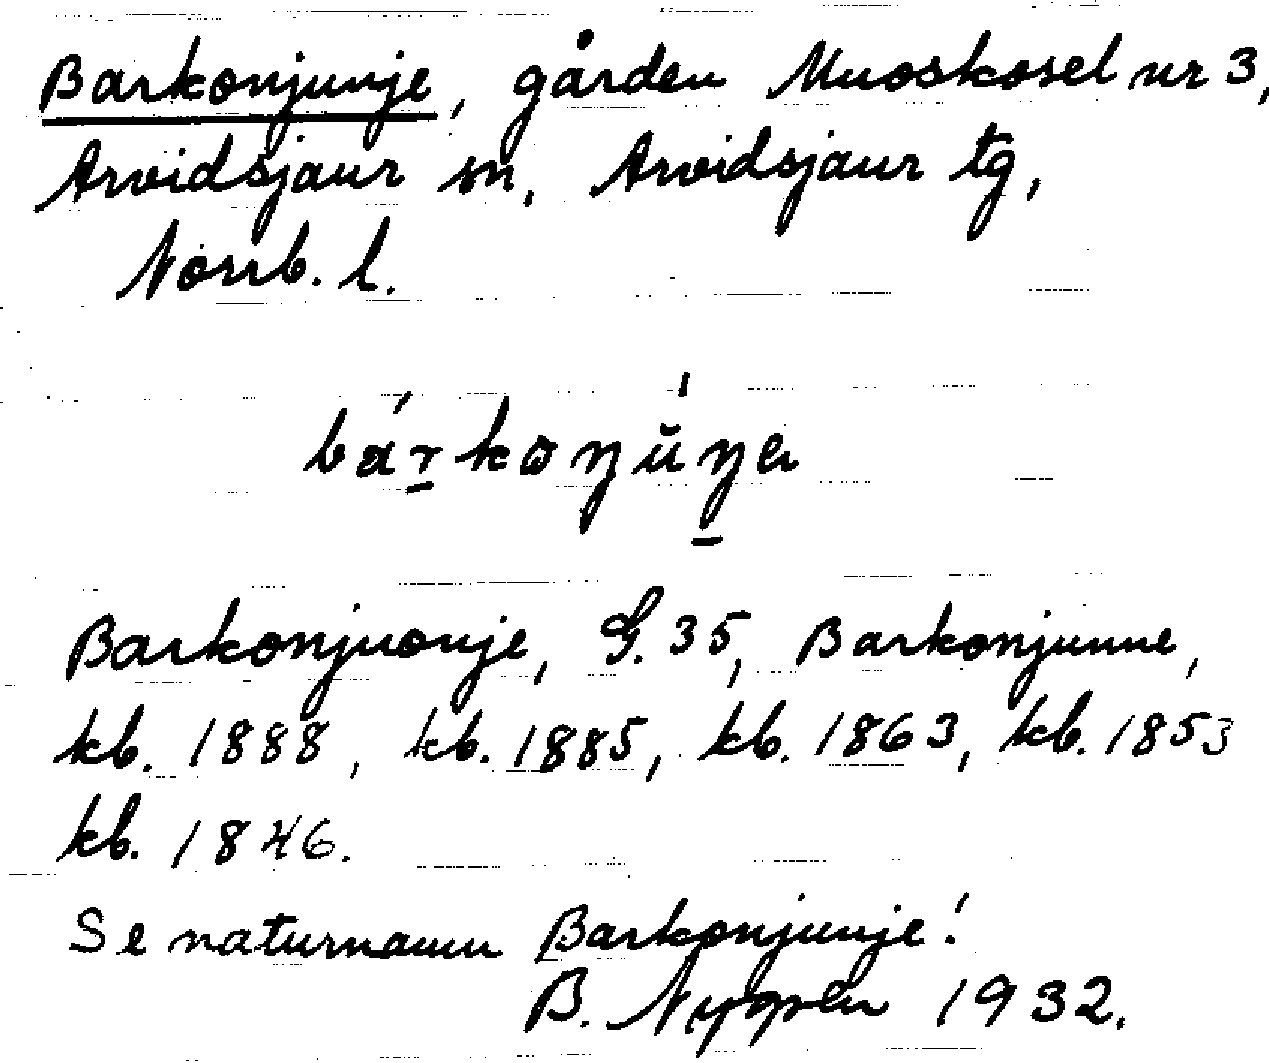 Barkonjunje, gården Muoskosel nr 3,
Arvidsjaur sn, Arvidsjaur tg,
Norrb. l.
Barkonjuonje, G. 35, Barkonjunne,
kb. 1888, kb. 1885, kb. 1863, kb. 1853
kb. 1846.
Se naturnamn Barkonjunje!
B. Nygren 1932.